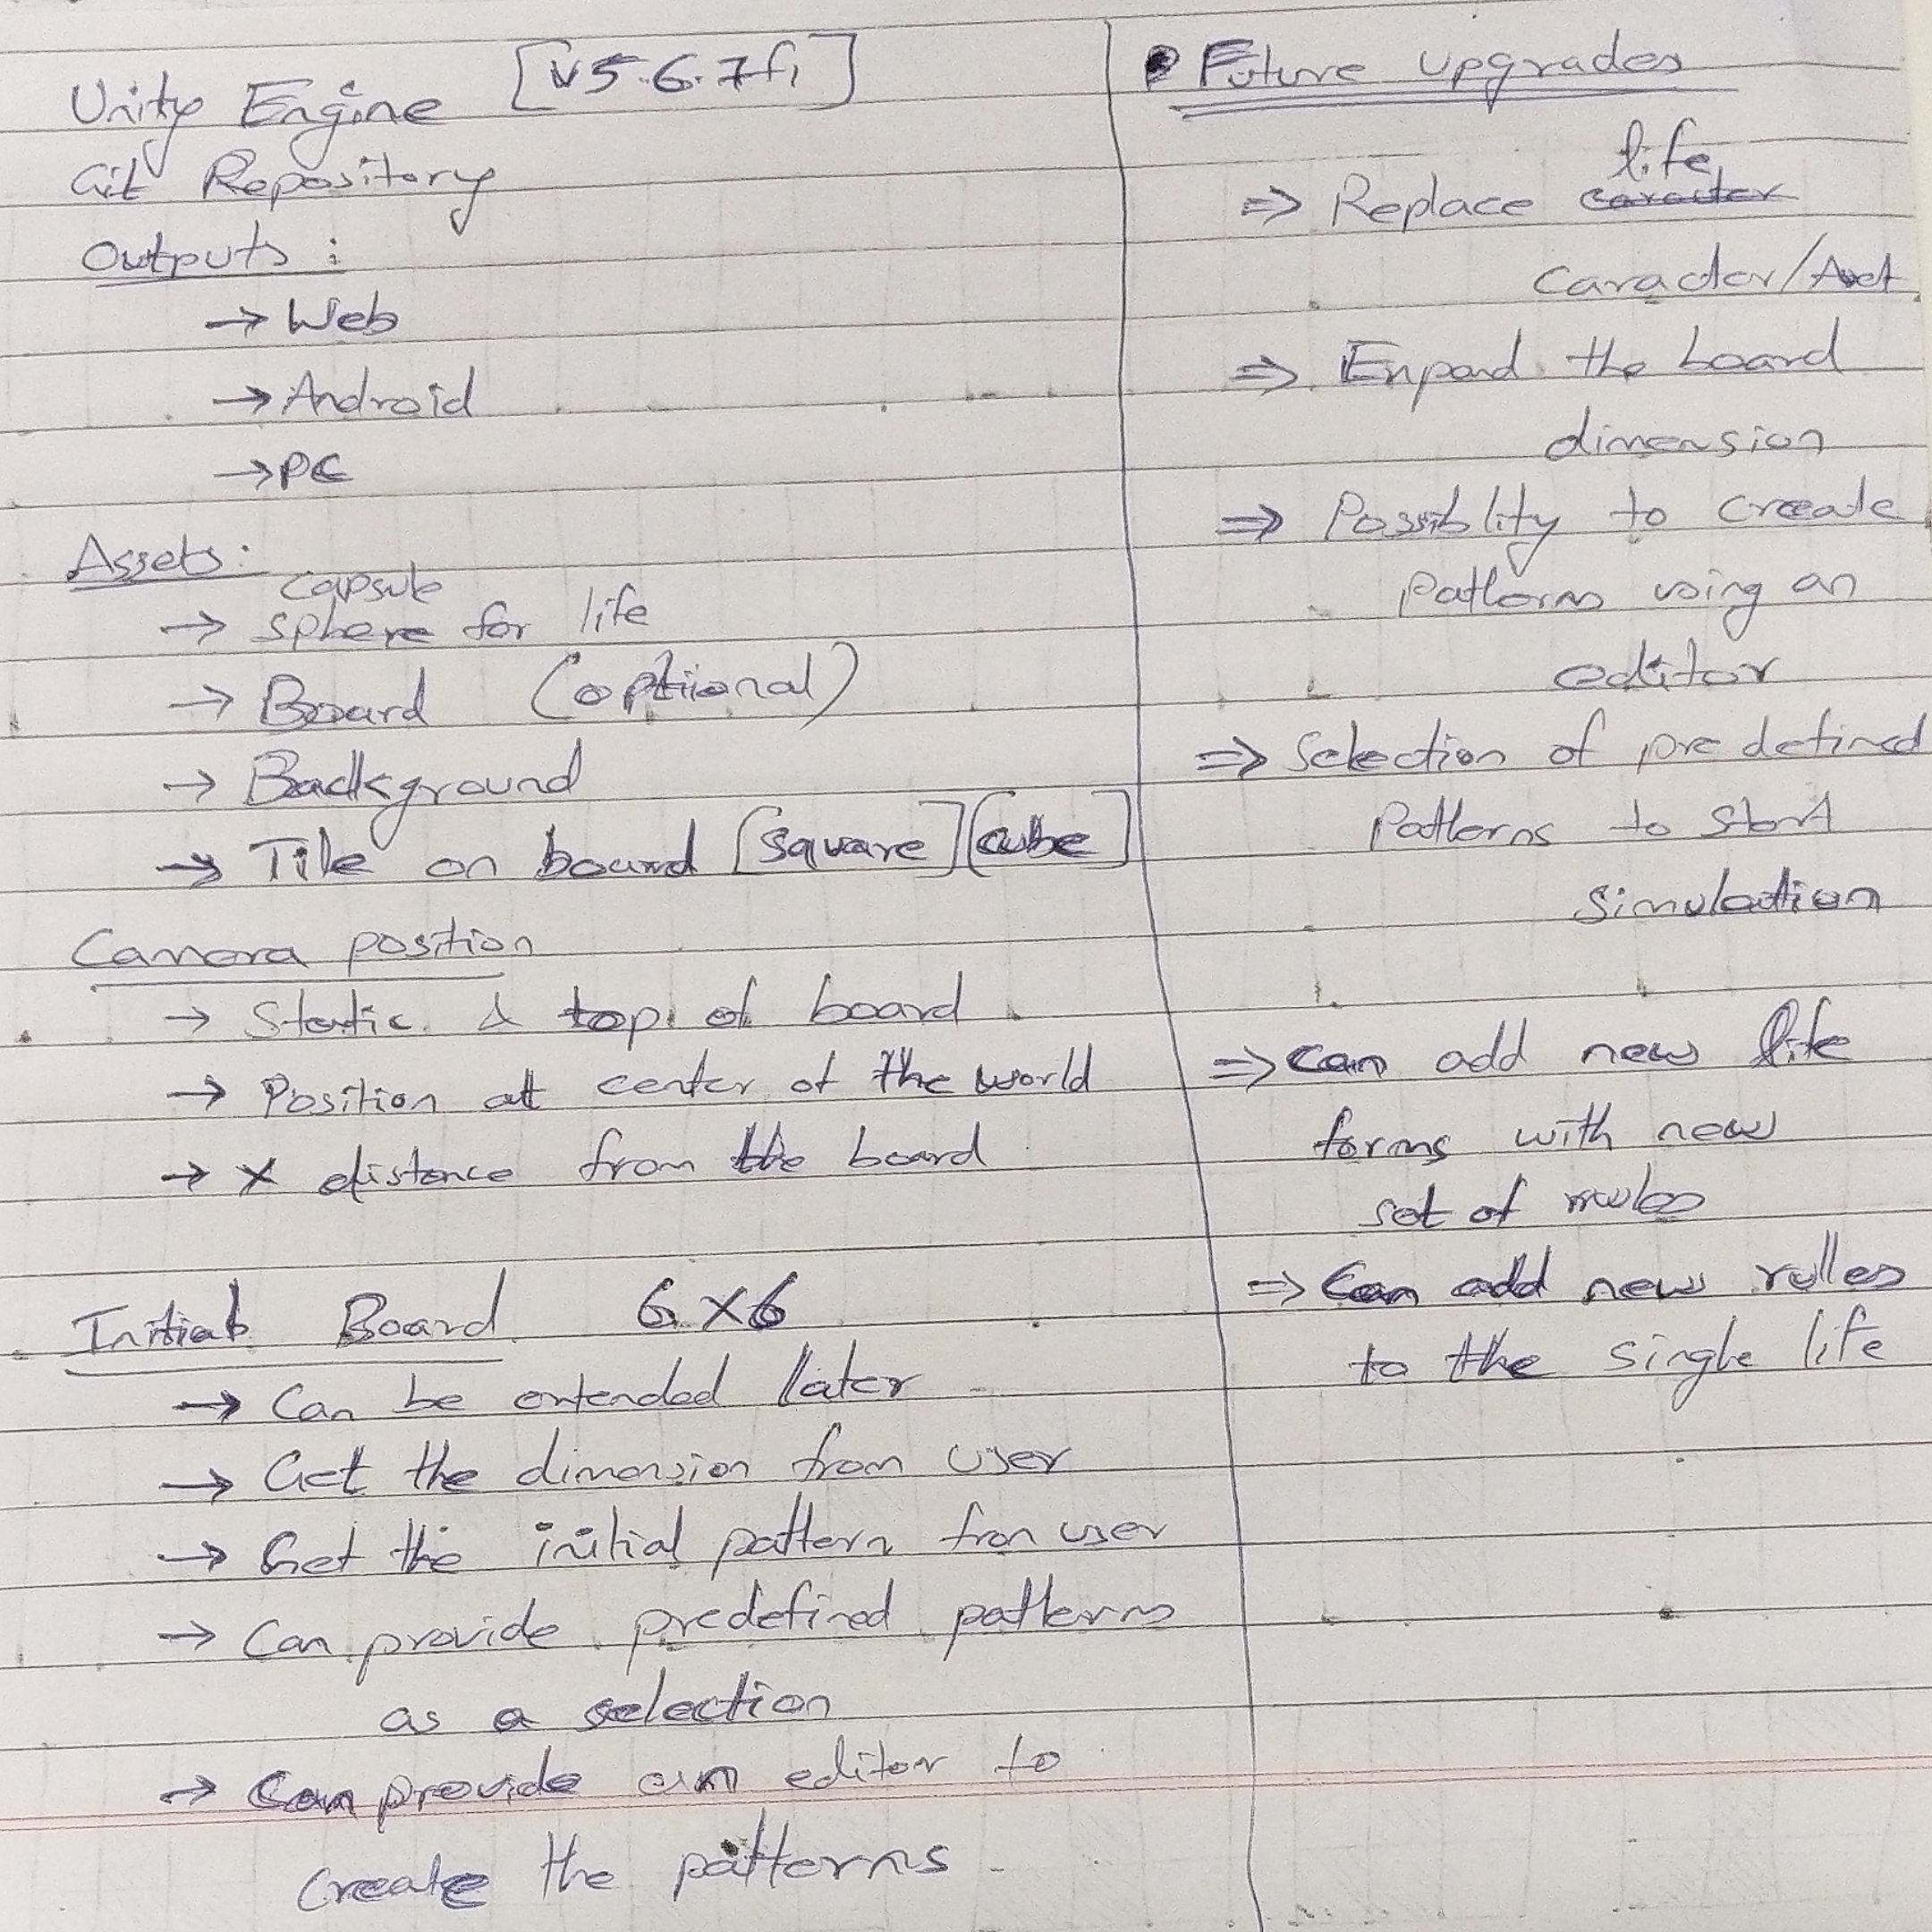 Unity Engine [v5.6.7f1]
Git Repository
Outputs :
→ Web
→ Android
→ PC
Assets:
capsule
→ sphere for life
→ Board (optiional)
→ Background
→ Tile on board [square] [cube]
Camera position
→ Static & top of board
→ Position at center of the world
→ X distance from the board
Initial Board 6x6
→ Can be extended later
→ Get the dimension from user
→ Get the initial pattern from user
→ Can provide predefined patterns
as a selection
→ Can provide an editor to
create the patterns
Future upgrades
life
⇒ Replace caracter
caracter/
⇒ Expand the board
dimension
⇒ Possiblity to create
patterns using an
editor
⇒ Selection of pre defined
patterns to start
simulation
⇒ Can add new life
forms with new
set of rules
⇒ Can add new rules
to the single life